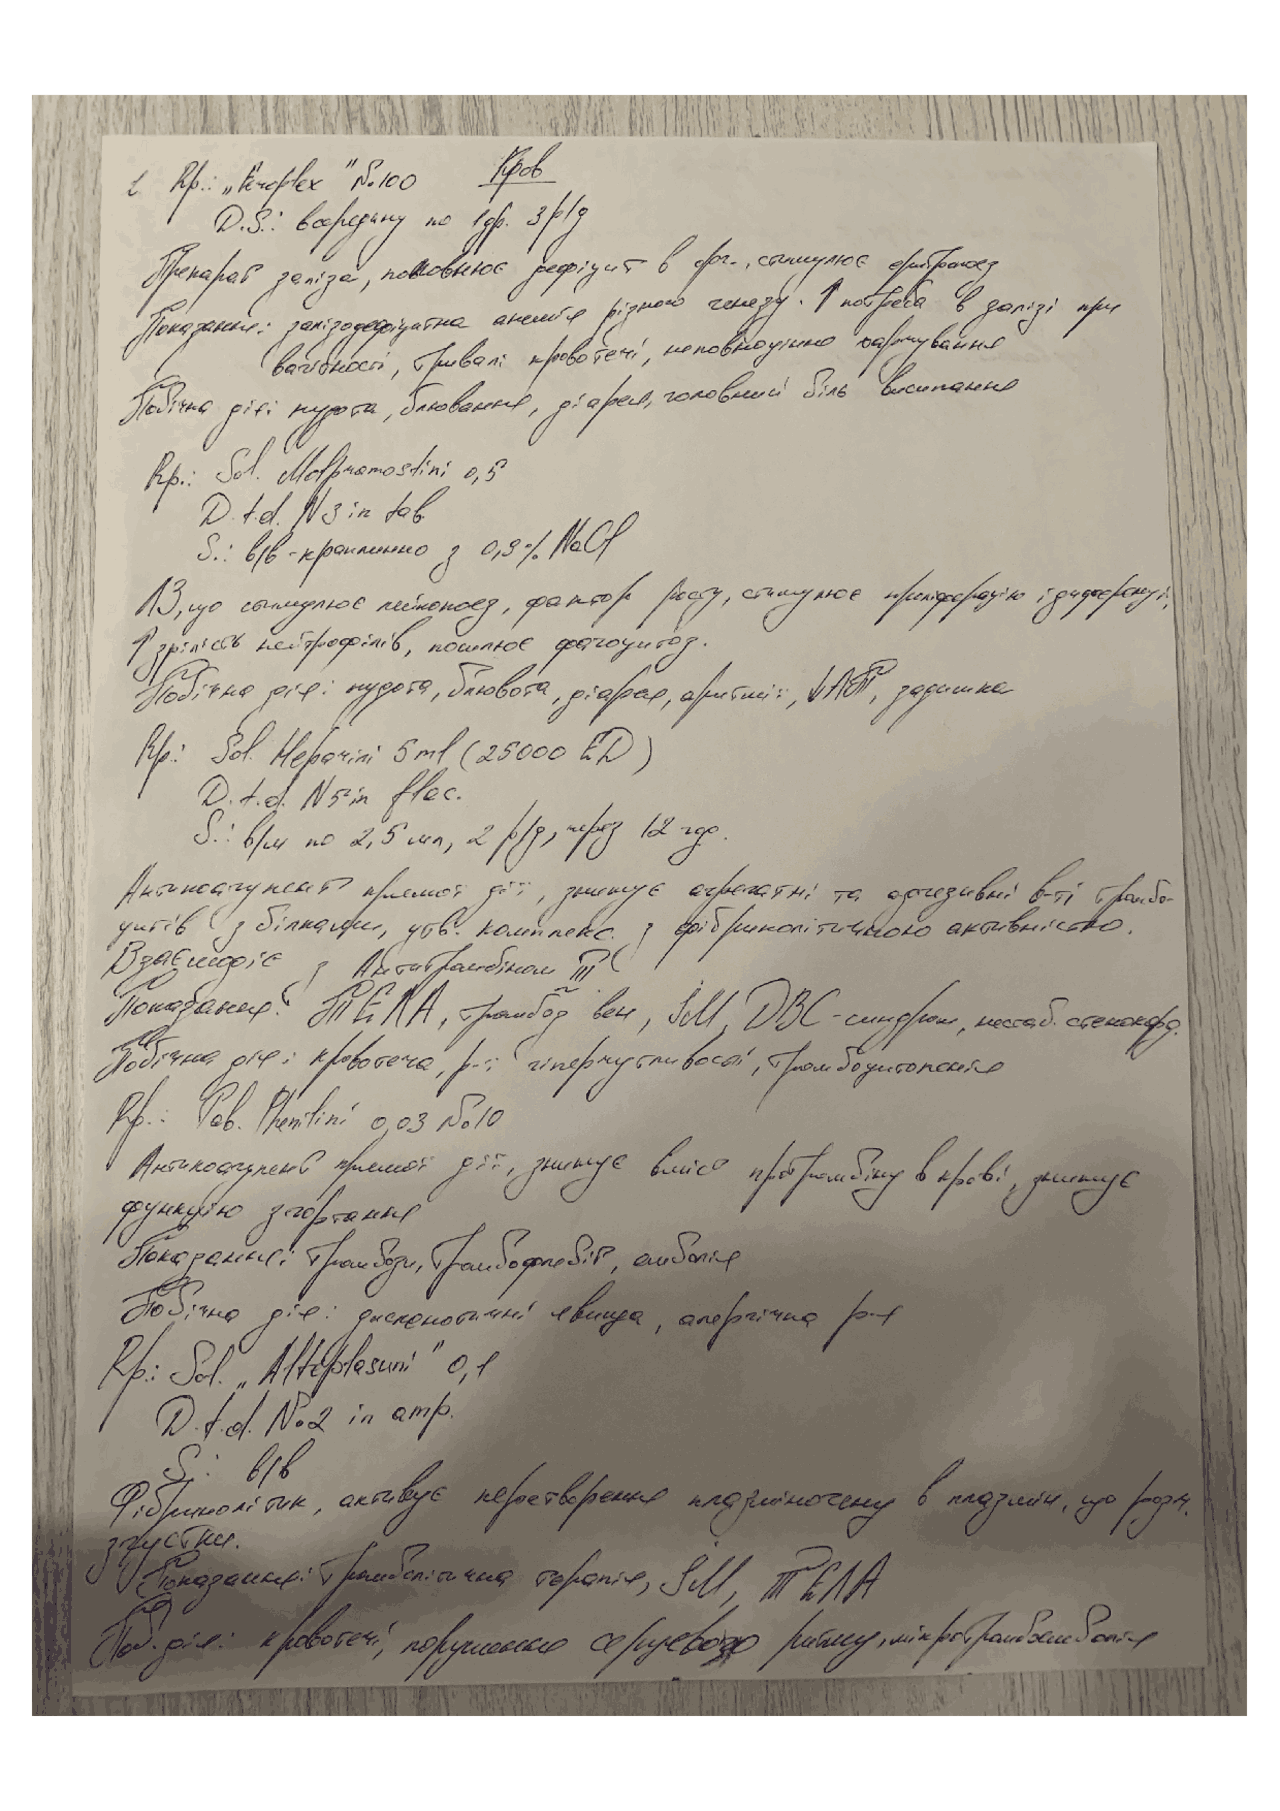 Кров
1 Rp.: „Feroplex" №100
D.S.: всередину по 1 др. 3 р/д
Препарат заліза, поповнює дефіцит в орг., стимулює еритропоез
Показання: залізодефіцитна анемія різного генезу. ↑ потреба в залізі при
вагітності, тривалі кровотечі, неповноцінне харчування
Побічна дія: нудота, блювання, діарея, головний біль висипання
Rp.: Sol. Molgramostini 0,5
D.t.d. N 3 in tab
S.: в/в-краплинно з 0,9% NaCl
ЛЗ, що стимулює лейкопоез, фактор росту, стимулює проліферацію і диференц.
↑ зрілість нейтрофілів, посилює фагоцитоз.
Побічна дія: нудота, блювота, діарея, аритмії, ↓АТ, задишка
Rp.: Sol. Heparini 5 ml (25000 ED)
D.t.d. N 5 in flac.
S.: в/м по 2,5 мл, 2 р/д, через 12 год.
Антикоагулянт прямої дії, знижує агрегатні та адгезивні в-ті тромбо-
цитів з білками, утв. комплекс. з фібринолітичною активністю.
Взаємодіє з Антитромбіном III
Показання: ТЕЛА, тромбоз вен, ІМ, ДВС-синдром, нестаб. стенокард.
Побічна дія: кровотеча, р-ї гіперчутливості, тромбоцитопенія
Rp.: Tab. Phenilini 0,03 №10
Антикоагулянт прямої дії, знижує вміст протромбіну в крові, знижує
функцію згортання
Показання: тромбози, тромбофлебіт, емболія
Побічна дія: диспепсичні явища, алергічна р-я
Rp.: Sol. „Alteplasuni" 0,1
D.t.d. №2 in amp.
S.: в/в
Фібринолітик, активує перетворення плазміногену в плазмін, що розч.
згустки.
Показання: тромболітична терапія, ІМ, ТЕЛА
Поб. дія: кровотечі, порушення серцевого ритму, мікротромбоемболія